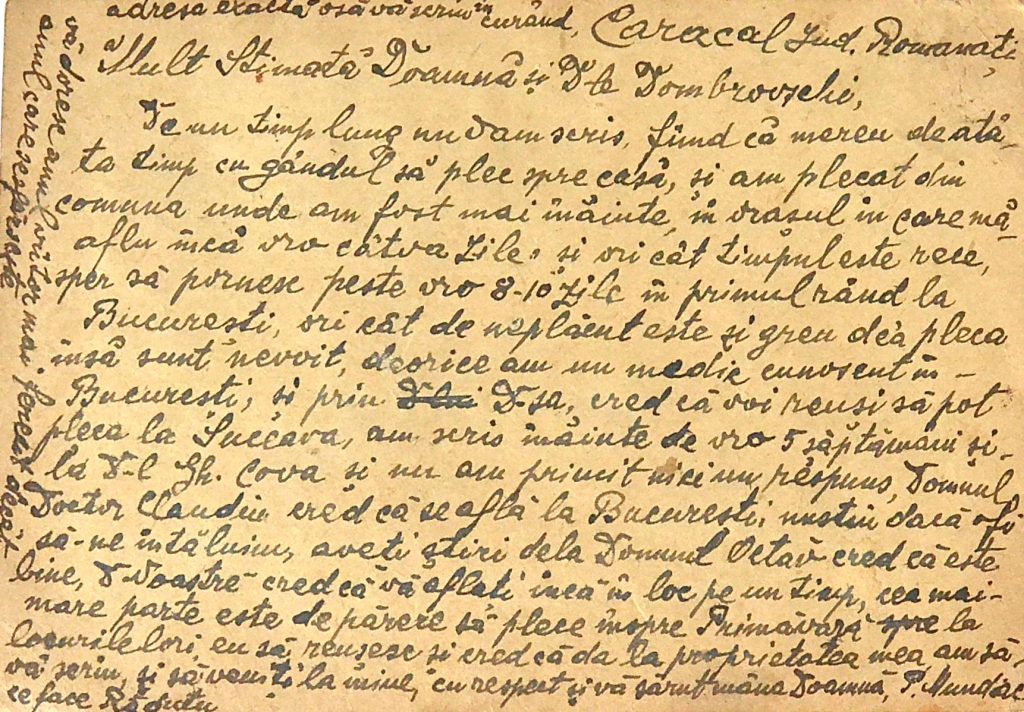 adresa exactă o să vă scriu în curând, Caracal Jud. Romanați
Mult Stimată Doamnă și D-le Dombrovschi,
De un timp lung nu v'am scris, fiind că mereu de atâ-
ta timp cu gândul să plec spre casă, si am plecat din
comuna unde am fost mai înainte, în orasul în care mă
aflu încă vro câtva zile, si ori cât timpul este rece,
sper să pornesc peste vro 8-10 zile în primul rând la
Bucuresti, ori cât de neplăcut este și greu de a pleca
însă sunt nevoit, deorice am un medic cunoscut în -
Bucuresti, si prin D-sa, cred că voi reusi să pot
pleca la Suceava, am scris înainte de vro 5 săptămani si-
la D-l Gh. Cova si nu am primit nici un răspuns, Domnul
Doctor Claudiu cred că se află la Bucuresti, nustiu dacă ofi
să-ne întâlnim, aveti știri dela Domnul Octav cred că este
bine, D-Voastră cred că vă aflati încă în loc pe un timp, cea mai-
mare parte este de părere să plece înspre Primăvară spre la
locurile lor, eu să reusesc si cred că da la proprietatea mea, am să-
vă scriu, si să veniti la mine, cu respect și vă sărut mâna Doamnă, P. Mundac
ce face Răducu
vă doresc anul viitor mai fericit decât
anul care se sfârseste